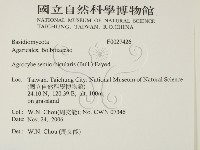 國立自然科學博物館
NATIONAL MUSEUM OF NATURAL SCIENCE
TAICHUNG, TAIWAN, R.O.CHINA
Basidiomycota F0027426
Agaricales, Bolbitiaceae
Agrocybe semiorbicularis (Bull.) Fayod
Loc: Taiwan, Taichung City, National Museum of Natural Science
(國立自然科學博物館)
24.10 N, 120.39 E, alt. 100m
on grassland
Col: W.N. Chou (周文能) No: CWN
Date: Nov. 24, 2006
Det: W.N. Chou (周文能)